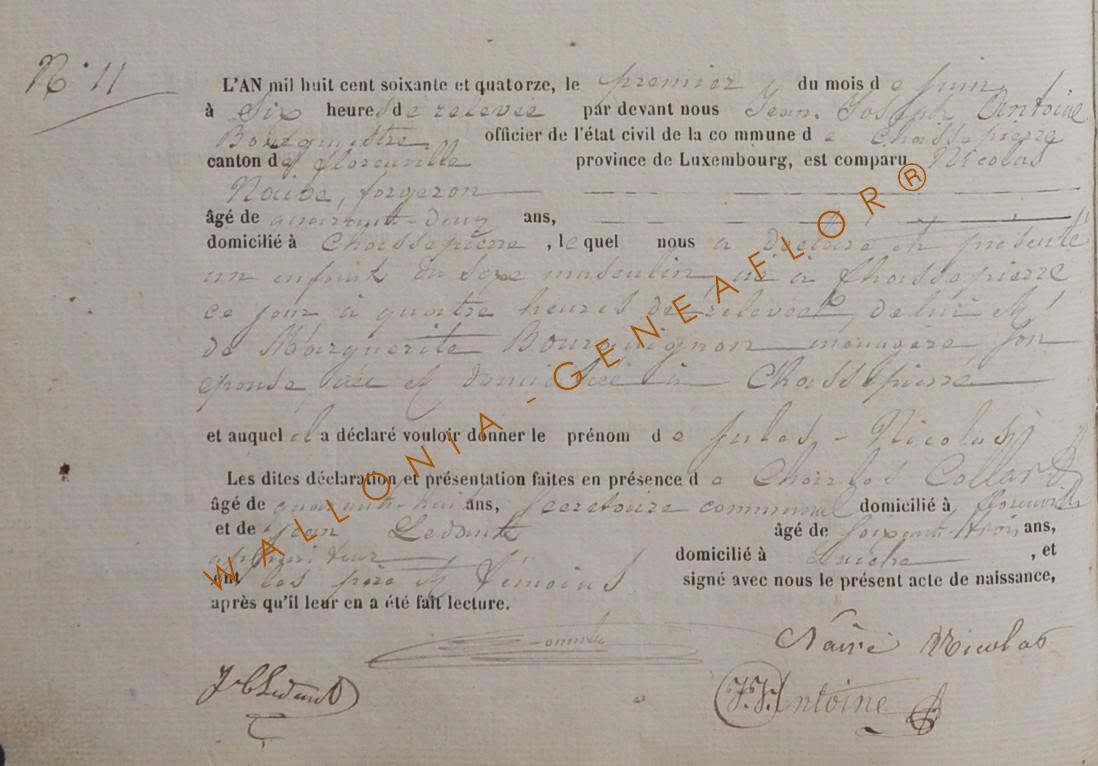 N° 11
L'AN mil huit cent soixante et quatorze, le premier du mois de Juin
à Six heures de relevée par devant nous Jean Joseph Antoine
Bourgmestre officier de l'état civil de la commune de Chassepierre
canton de florenville province de Luxembourg, est comparu Nicolas
Naive, forgeron
âgé de quarant-deux ans,
domicilié à Chassepierre, lequel nous a déclaré et présenté
un enfant du sexe masculin né a Chassepierre
ce jour à quatre heures de relevée, de lui &
de Marguerite Bourguignon menagère son
epouse née & domiciliée à Chassepierre
et auquel il a déclaré vouloir donner le prénom de Jules-Nicolas
Les dites déclaration et présentation faites en présence de Charles Collard
âgé de quarante-huit ans, Secretaire communal domicilié à florenville
et de Jean Ledant âgé de soixant-trois ans,
domicilié à Laiche, et
ont les père & témoins signé avec nous le présent acte de naissance,
après qu'il leur en a été fait lecture.
Naivé Nicolas
J.J. Antoine
WALLONIA-GENEAFLOR®